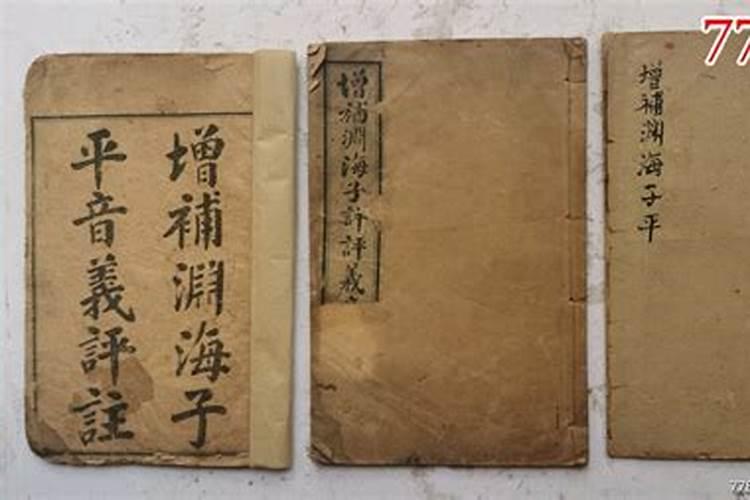 增補淵海子
平音義評註
增補淵海子
評義
增補淵海子平
77
778